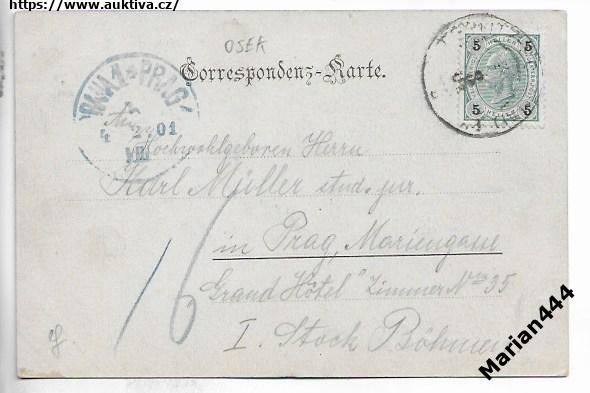 https://www.auktiva.cz/
OSEK
Correspondenz-Karte.
5 5
5 5
PRAHA 1 PRAG
01
VIII
Hochwohlgeboren Herrn
Karl Müller stud. jur.
in Prag, Mariengasse
"Grand Hôtel" Zimmer Nro 35
I. Stock Böhmen
16
Marian444